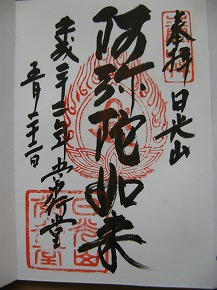 奉拝 日光山
阿弥陀如来
平成二十二年 常行堂
五月二十二日